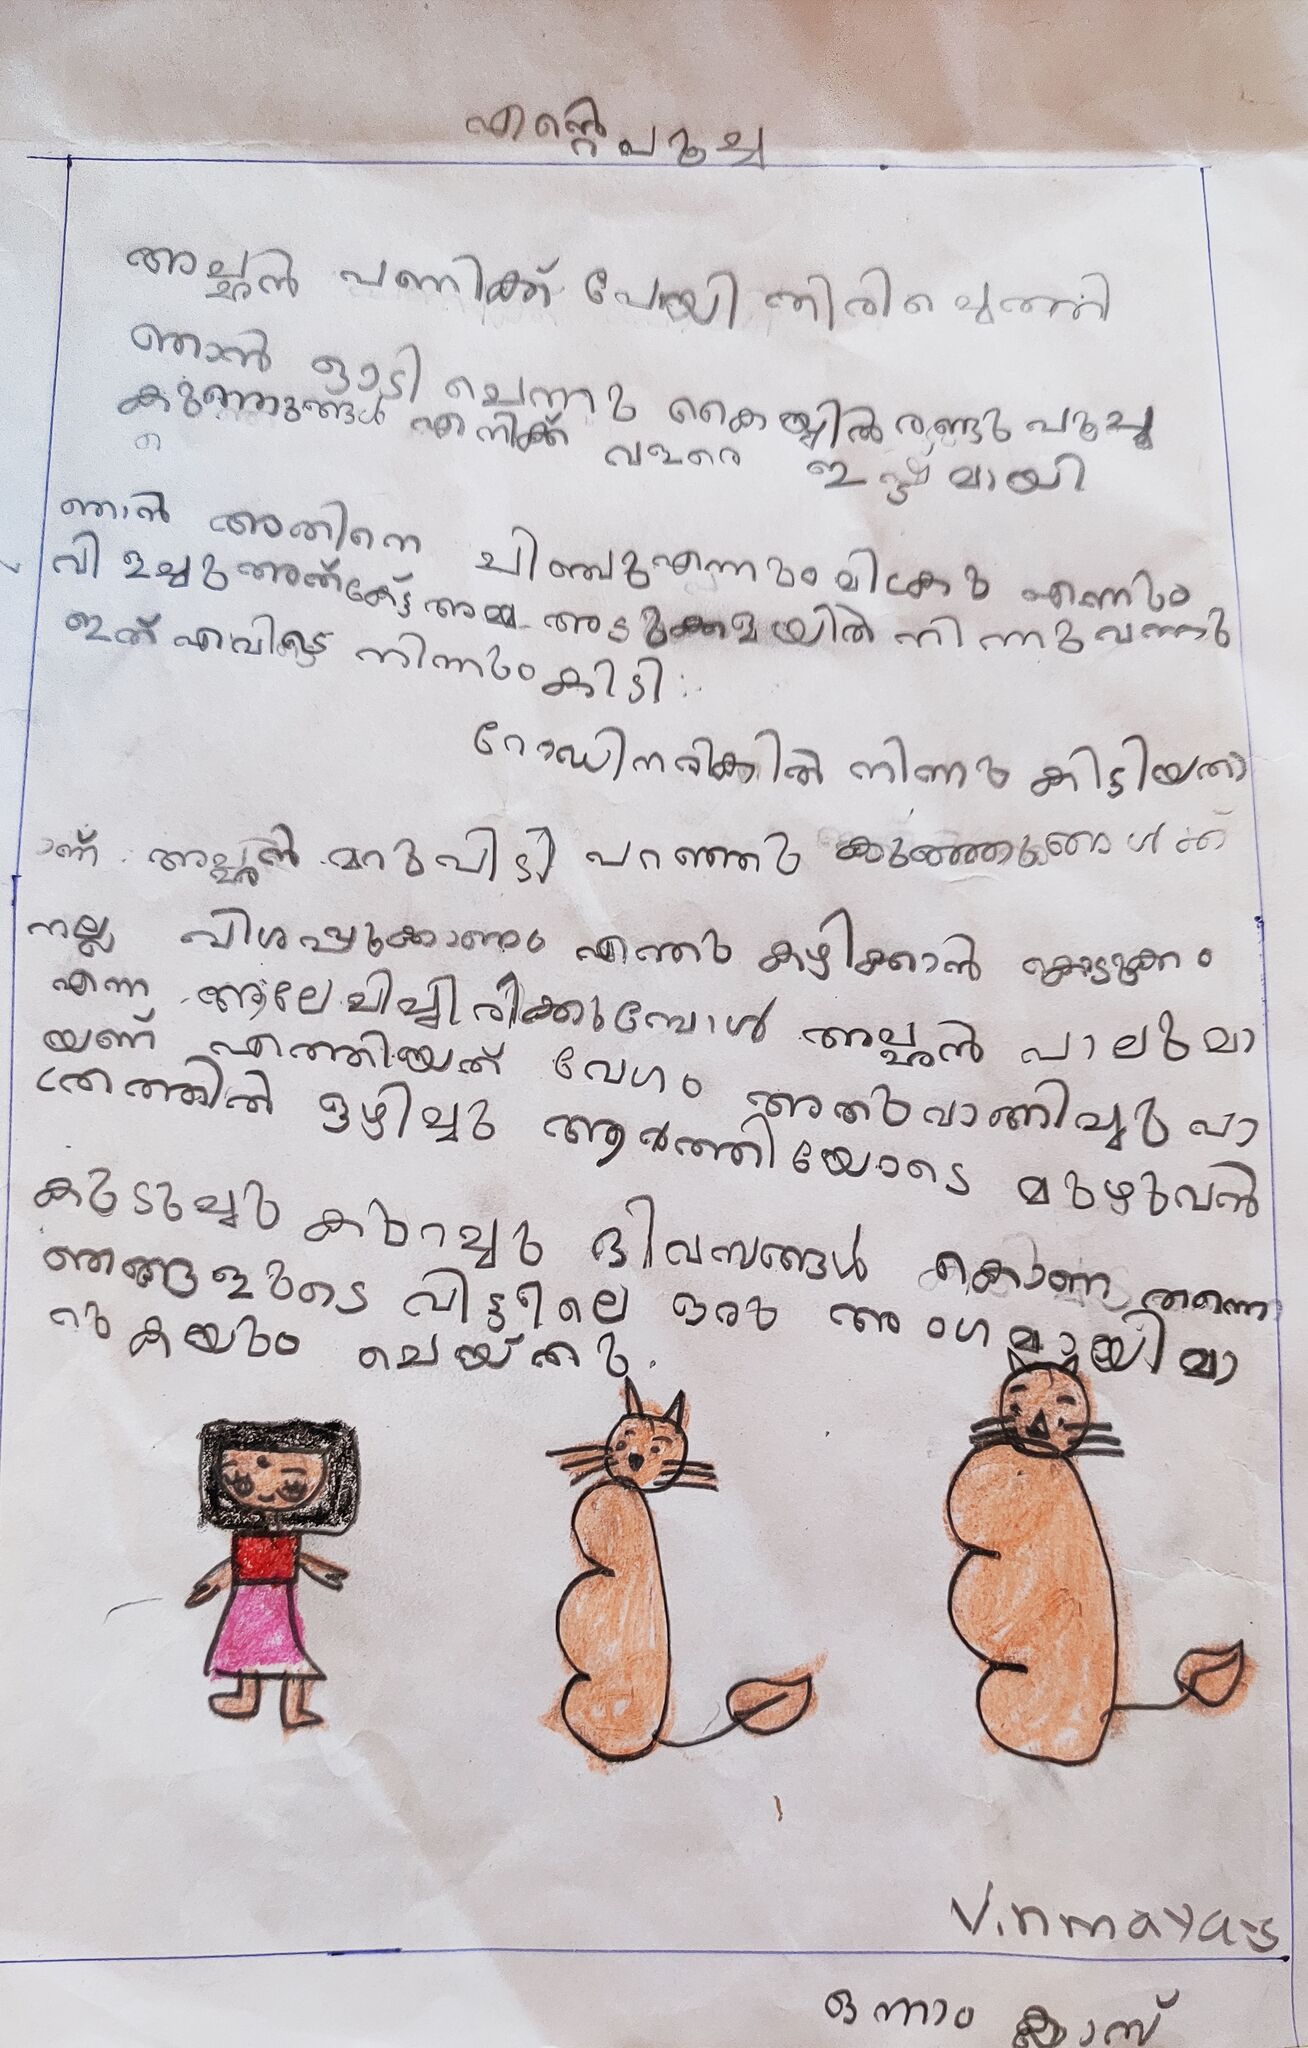 എന്റെ പൂച്ച
അച്ഛൻ പണിക്ക് പോയി തിരിച്ചെത്തി
ഞാൻ ഓടി ചെന്നു കൈയ്യിൽ രണ്ടു പൂച്ച
കുഞ്ഞുങ്ങൾ എനിക്ക് വളരെ ഇഷ്ട്ടമായി
ഞാൻ അതിനെ ചിഞ്ചു എന്നും മിക്കു എന്നും
വിളച്ചു അത് കേട്ട് അമ്മ അടുക്കളയിൽ നിന്നു വന്നു
ഇത് എവിടെ നിന്നും കിട്ടി
റോഡിനരികിൽ നിന്നു കിട്ടിയതാ
ണ് അച്ഛൻ മറുപിടി പറഞ്ഞു കുഞ്ഞുങ്ങൾക്ക്
നല്ല വിശപ്പുകാണും എന്തു കഴിക്കാൻ കൊടുക്കും
എന്ന ആലേചിച്ചിരിക്കുമ്പോൾ അച്ഛൻ പാലുമാ
യണ് എത്തിയത് വേഗം അതുവാങ്ങിച്ചു പാ
ത്രത്തിൽ ഒഴിച്ചു ആർത്തിയോടെ മുഴുവൻ
കുടുച്ചു കുറച്ചു ദിവസങ്ങൾ കൊണ്ട തന്നെ
ഞങ്ങളുടെ വിട്ടിലെ ഒരു അംഗമായി മാ
റുകയും ചെയ്തു.
Vinmaya.s
ഒന്നാം ക്ലാസ്